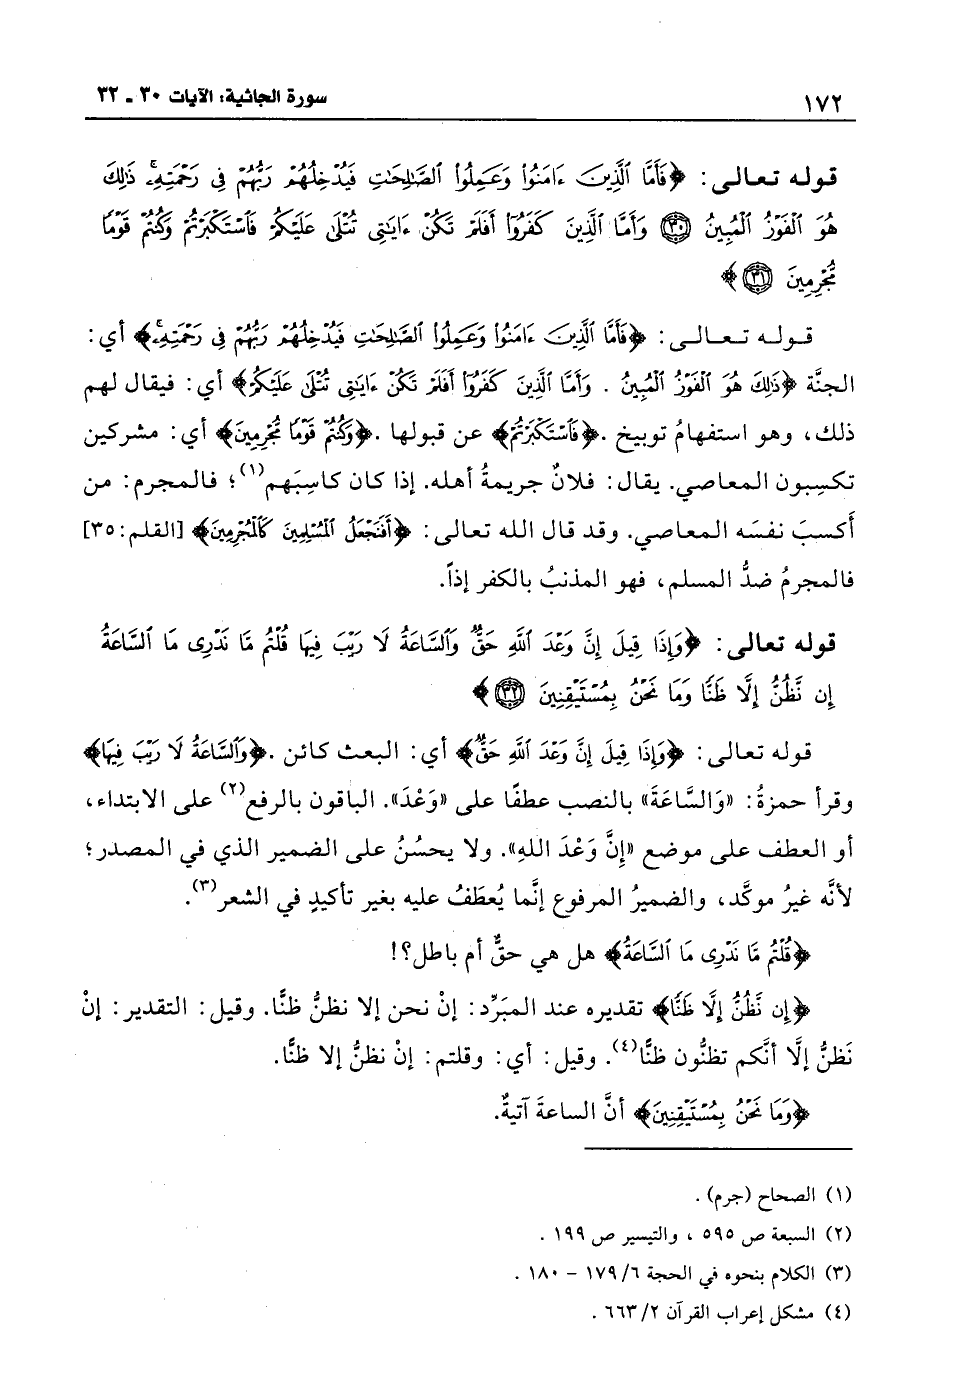 ١٧٢
سورة الجاثية: الآيات ٣٠ - ٣٢
قوله تعالى: ﴿فَأَمَّا ٱلَّذِينَ ءَامَنُوا۟ وَعَمِلُوا۟ ٱلصَّـٰلِحَـٰتِ فَيُدْخِلُهُمْ رَبُّهُمْ فِى رَحْمَتِهِۦۚ ذَٰلِكَ
هُوَ ٱلْفَوْزُ ٱلْمُبِينُ ٣٠ وَأَمَّا ٱلَّذِينَ كَفَرُوٓا۟ أَفَلَمْ تَكُنْ ءَايَـٰتِى تُتْلَىٰ عَلَيْكُمْ فَٱسْتَكْبَرْتُمْ وَكُنتُمْ قَوْمًا
مُّجْرِمِينَ ٣١﴾
قوله تعالى: ﴿فَأَمَّا ٱلَّذِينَ ءَامَنُوا۟ وَعَمِلُوا۟ ٱلصَّـٰلِحَـٰتِ فَيُدْخِلُهُمْ رَبُّهُمْ فِى رَحْمَتِهِۦۚ﴾ أي:
الجنَّة ﴿ذَٰلِكَ هُوَ ٱلْفَوْزُ ٱلْمُبِينُ . وَأَمَّا ٱلَّذِينَ كَفَرُوٓا۟ أَفَلَمْ تَكُنْ ءَايَـٰتِى تُتْلَىٰ عَلَيْكُمْ﴾ أي: فيقال لهم
ذلك، وهو استفهامُ توبيخ. ﴿فَٱسْتَكْبَرْتُمْ﴾ عن قبولها. ﴿وَكُنتُمْ قَوْمًا مُّجْرِمِينَ﴾ أي: مشركين
تكسِبون المعاصي. يقال: فلانٌ جريمةُ أهله. إذا كان كاسِبَهم(١)؛ فالمجرم: من
أكسبَ نفسَه المعاصي. وقد قال الله تعالى: ﴿أَفَنَجْعَلُ ٱلْمُسْلِمِينَ كَٱلْمُجْرِمِينَ﴾ [القلم: ٣٥]
فالمجرمُ ضدُّ المسلم، فهو المذنبُ بالكفر إذاً.
قوله تعالى: ﴿وَإِذَا قِيلَ إِنَّ وَعْدَ ٱللَّهِ حَقٌّ وَٱلسَّاعَةُ لَا رَيْبَ فِيهَا قُلْتُم مَّا نَدْرِى مَا ٱلسَّاعَةُ
إِن نَّظُنُّ إِلَّا ظَنًّا وَمَا نَحْنُ بِمُسْتَيْقِنِينَ ٣٢﴾
قوله تعالى: ﴿وَإِذَا قِيلَ إِنَّ وَعْدَ ٱللَّهِ حَقٌّ﴾ أي: البعث كائن. ﴿وَٱلسَّاعَةُ لَا رَيْبَ فِيهَا﴾
وقرأ حمزةُ: «وَالسَّاعَةَ» بالنصب عطفًا على «وَعْدَ». الباقون بالرفع(٢) على الابتداء،
أو العطف على موضع «إِنَّ وَعْدَ اللهِ». ولا يحسُنُ على الضمير الذي في المصدر؛
لأنَّه غيرُ موكَّد، والضميرُ المرفوع إنَّما يُعطَفُ عليه بغير تأكيدٍ في الشعر(٣).
﴿قُلْتُم مَّا نَدْرِى مَا ٱلسَّاعَةُ﴾ هل هي حقٌّ أم باطل؟!
﴿إِن نَّظُنُّ إِلَّا ظَنًّا﴾ تقديره عند المبَرِّد: إنْ نحن إلا نظنُّ ظنًّا. وقيل: التقدير: إنْ
نَظنُّ إلَّا أنَّكم تظنُّون ظنًّا(٤). وقيل: أي: وقلتم: إنْ نظنُّ إلا ظنًّا.
﴿وَمَا نَحْنُ بِمُسْتَيْقِنِينَ﴾ أنَّ الساعةَ آتيةٌ.
(١) الصحاح (جرم).
(٢) السبعة ص ٥٩٥ ، والتيسير ص ١٩٩ .
(٣) الكلام بنحوه في الحجة ٦/ ١٧٩ – ١٨٠ .
(٤) مشكل إعراب القرآن ٢/ ٦٦٣ .